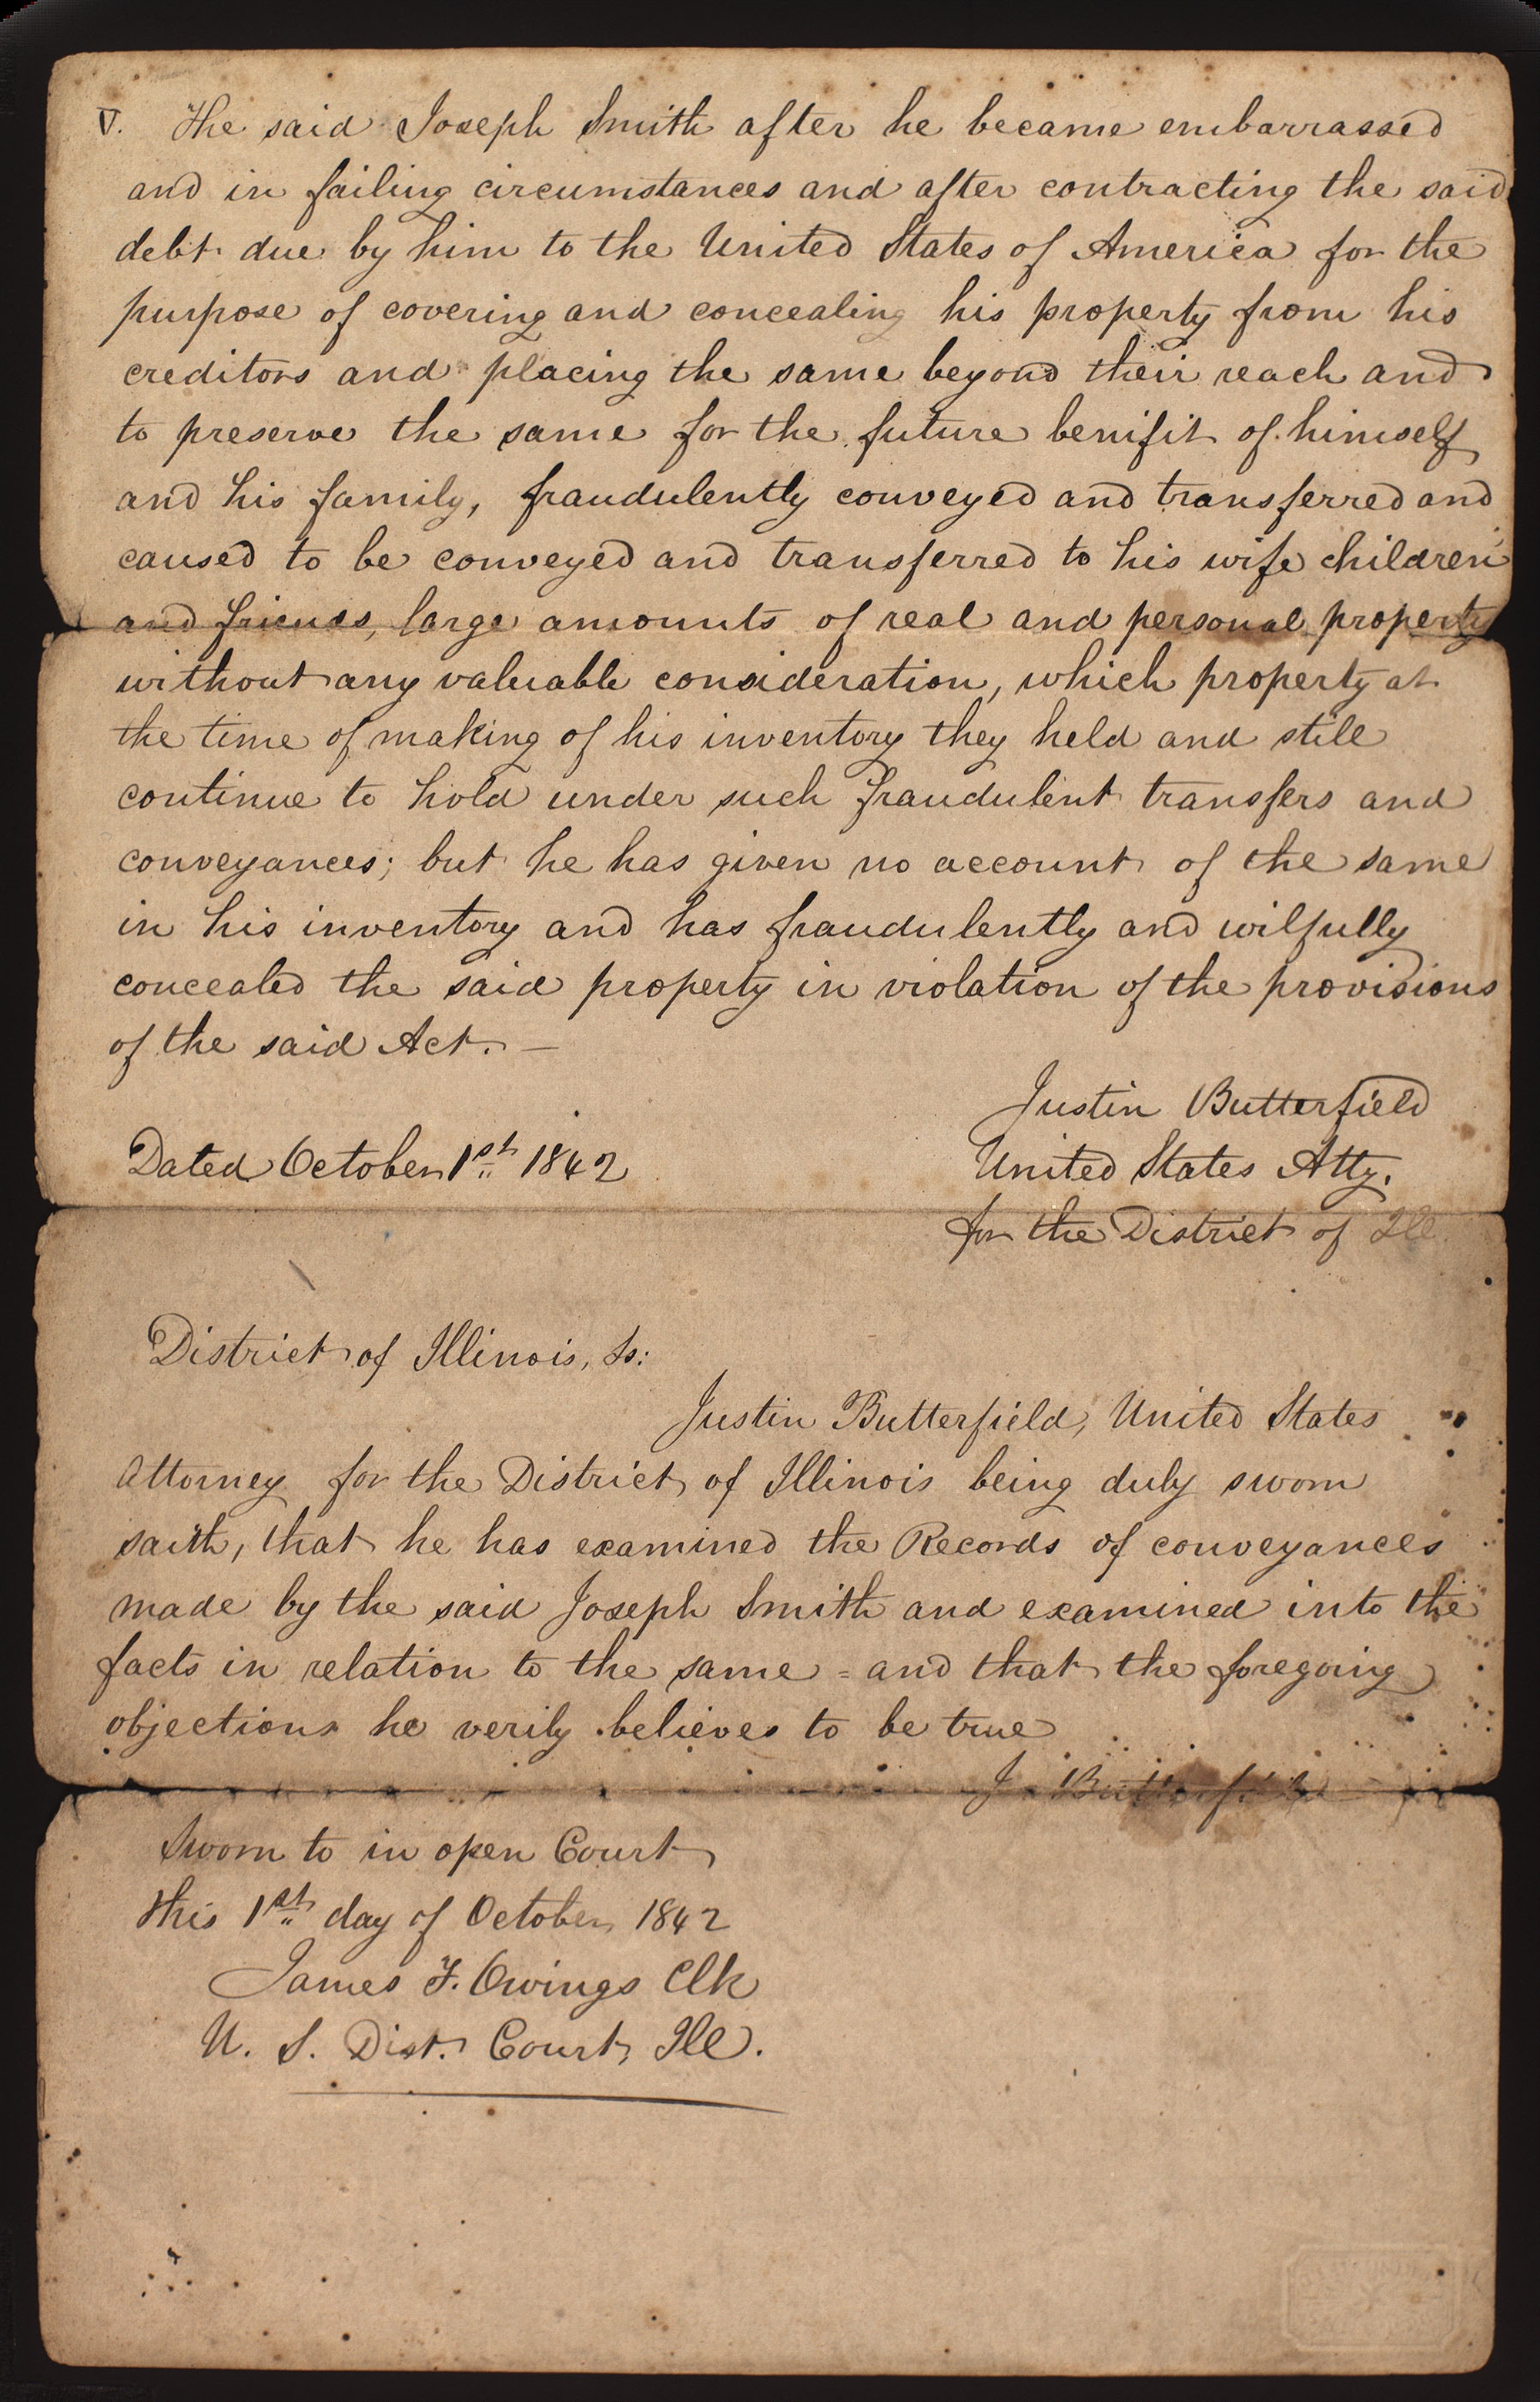 V. The said Joseph Smith after he became embarrassed
and in failing circumstances and after contracting the said
debt due by him to the United States of America for the
purpose of covering and concealing his property from his
creditors and placing the same beyond their reach and
to preserve the same for the future benifit of himself
and his family, fraudulently conveyed and transferred and
caused to be conveyed and transferred to his wife children
and friends, large amounts of real and personal property
without any valuable consideration, which property at
the time of making of his inventory they held and still
continue to hold under such fraudulent transfers and
conveyances; but he has given no account of the same
in his inventory and has fraudulently and wilfully
concealed the said property in violation of the provisions
of the said Act. —
Justin Butterfield
Dated October 1st 1842
United States Atty.
for the District of Ill
District of Illinois, Ss:
Justin Butterfield, United States
Attorney for the District of Illinois being duly sworn
saith, that he has examined the Records of conveyances
made by the said Joseph Smith and examined into the
facts in relation to the same = and that the foregoing
objections he verily believes to be true
J. Butterfield
Sworn to in open Court
this 1st day of October 1842
James F. Owings Clk
U. S. Dist. Court, Ill.